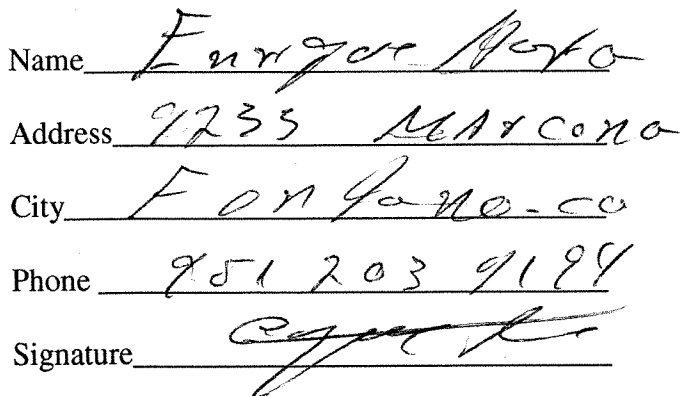 Name Enrique
Address 9233 Marcona
City Fontana - ca
Phone 951 203 9194
Signature